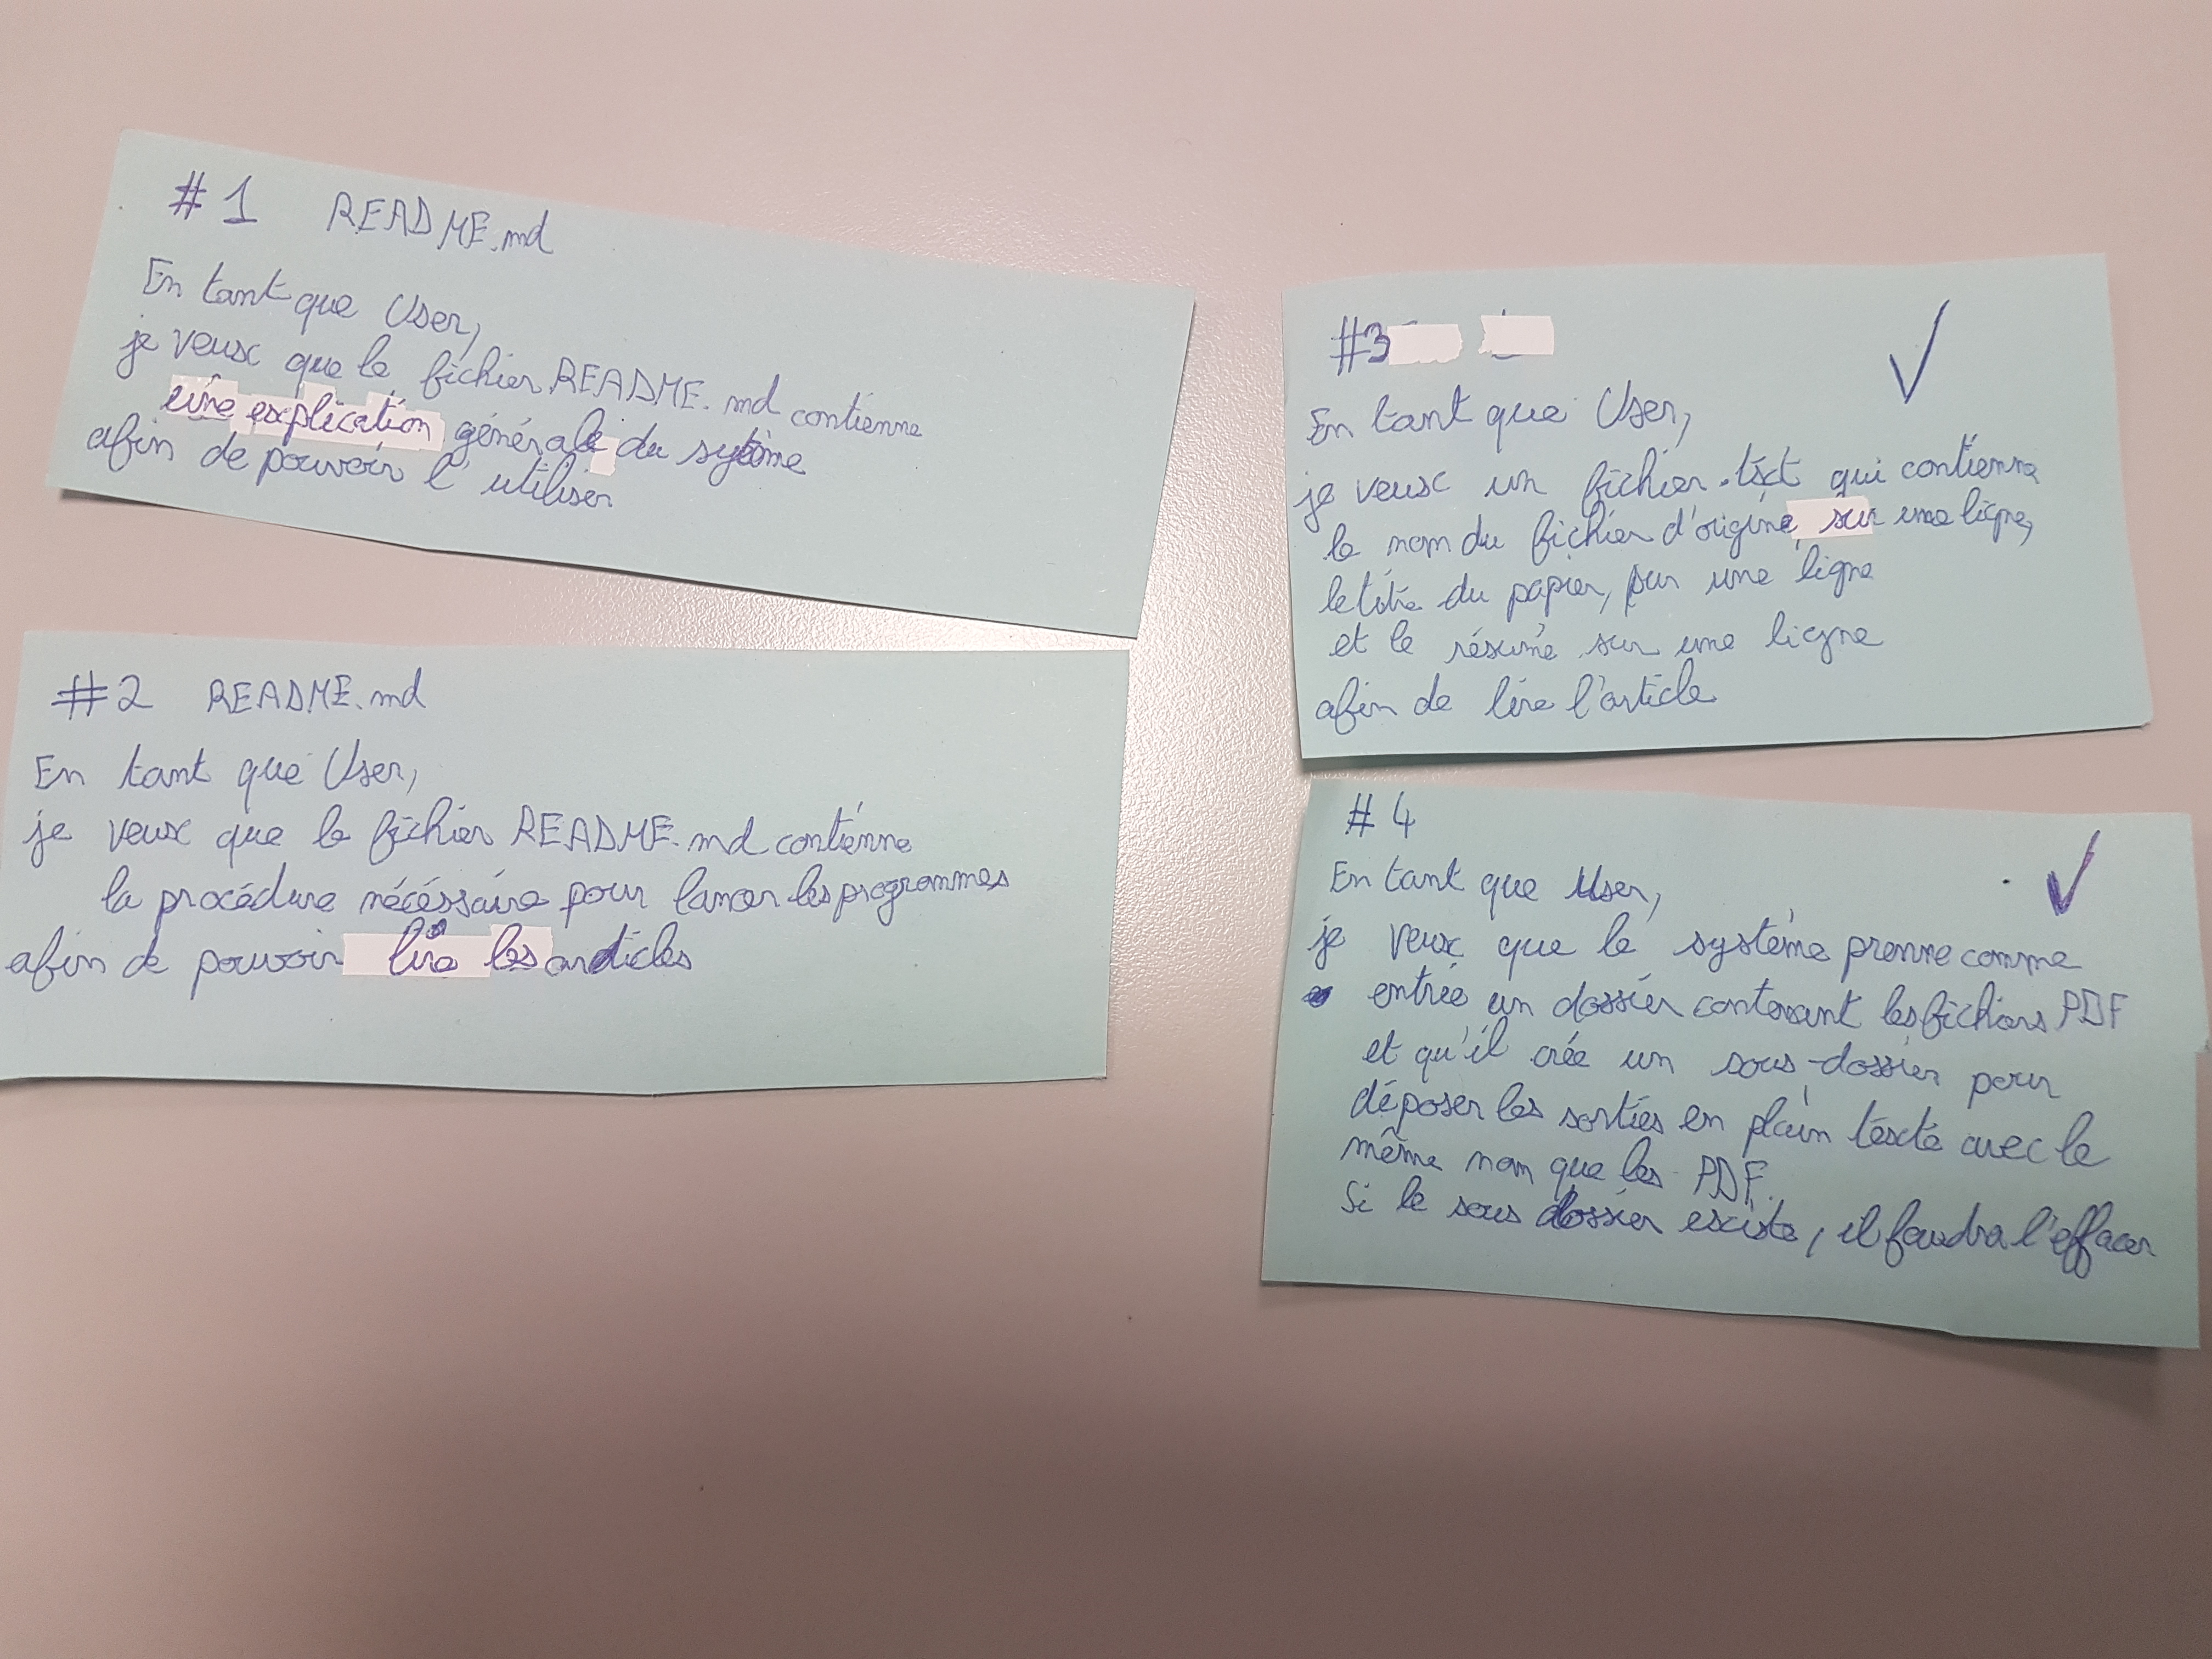 #1 README.md
En tant que User,
je veux que le fichier README.md contienne
une explication générale du sytème
afin de pouvoir l'utiliser
#2 README.md
En tant que User,
je veux que le fichier README.md contienne
la procédure nécéssaire pour lancer les programmes
afin de pouvoir lire les articles
#3
En tant que User,
je veux un fichier .txt qui contienne
le nom du fichier d'origine, sur une ligne,
le titre du papier, sur une ligne
et le résumé sur une ligne
afin de lire l'article
#4
En tant que User,
je veux que le système prenne comme
entrée un dossier contenant les fichiers PDF
et qu'il crée un sous-dossier pour
déposer les sorties en plain texte avec le
même nom que les PDF.
Si le sous dossier existe, il faudra l'effacer